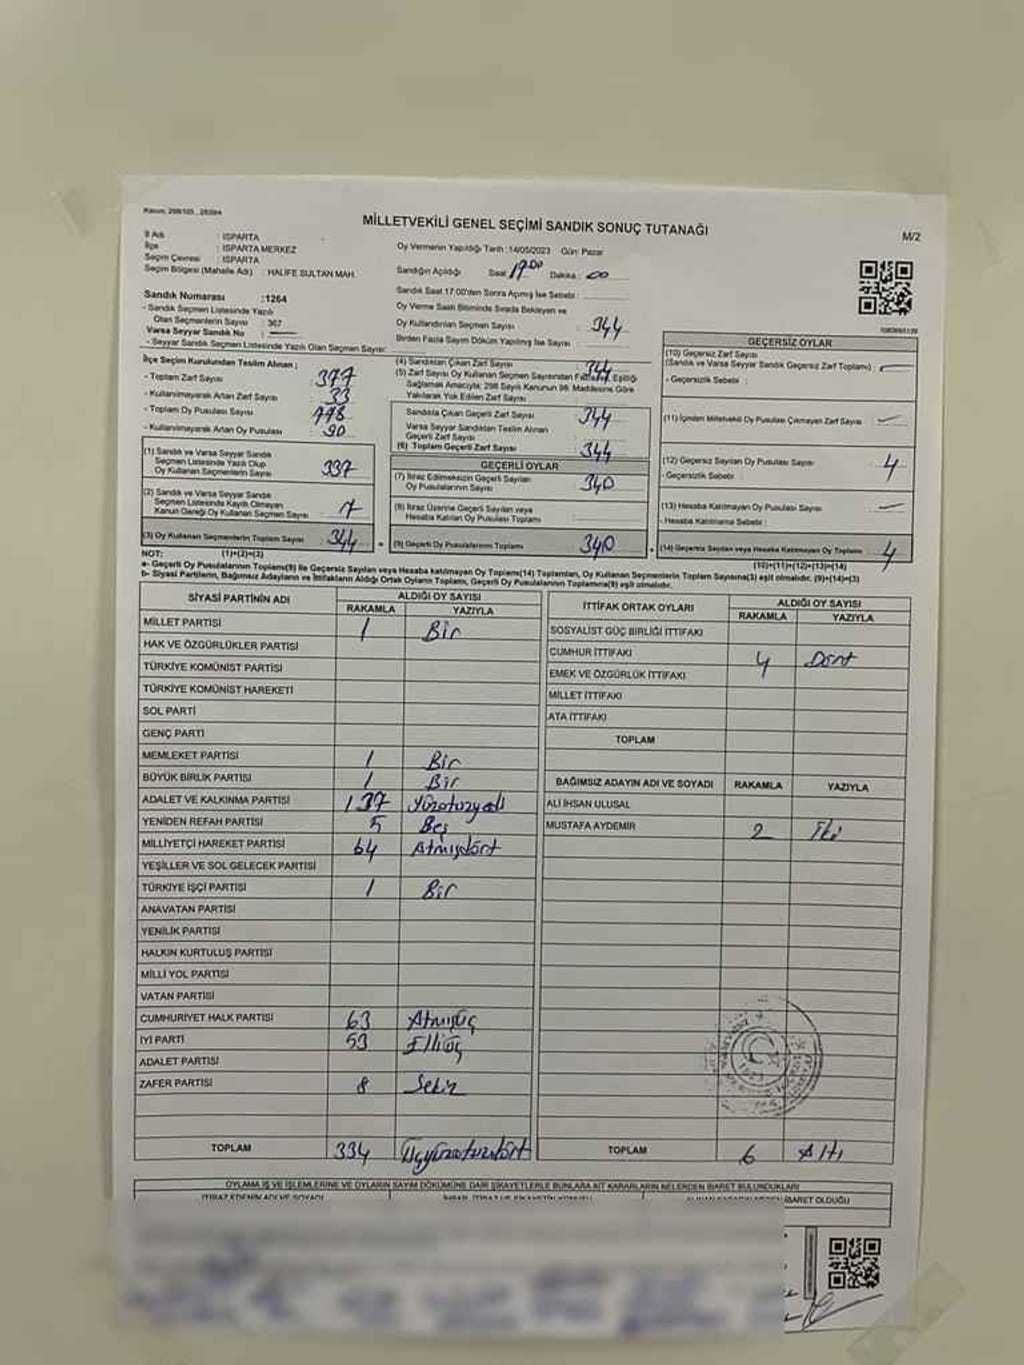 MİLLETVEKİLİ GENEL SEÇİMİ SANDIK SONUÇ TUTANAĞI
M/2
İl Adı : ISPARTA
İlçe : ISPARTA MERKEZ
Seçim Çevresi : ISPARTA
Seçim Bölgesi (Mahalle Adı) : HALİFE SULTAN MAH.
Oy Vermenin Yapıldığı Tarih : 14/05/2023 Gün: Pazar
Sandığın Açıldığı Saat : Dakika : 00
Sandık Saat 17.00'den Sonra Açılmış İse Sebebi :
Oy Verme Saati Bitiminde Sırada Bekleyen ve
Oy Kullandırılan Seçmen Sayısı 344
Birden Fazla Sayım Döküm Yapılmış İse Sayısı :
Sandık Numarası : 1264
- Sandık Seçmen Listesinde Yazılı
Olan Seçmenlerin Sayısı : 367
Varsa Seyyar Sandık No :
- Seyyar Sandık Seçmen Listesinde Yazılı Olan Seçmen Sayısı:
İlçe Seçim Kurulundan Teslim Alınan ;
- Toplam Zarf Sayısı : 377
- Kullanılmayarak Artan Zarf Sayısı : 33
- Toplam Oy Pusulası Sayısı
- Kullanılmayarak Artan Oy Pusulası : 90
(1) Sandık ve Varsa Seyyar Sandık
Seçmen Listesinde Yazılı Olup
Oy Kullanan Seçmenlerin Sayısı : 337
(2) Sandık ve Varsa Seyyar Sandık
Seçmen Listesinde Kayıtlı Olmayan
Kanun Gereği Oy Kullanan Seçmen Sayısı : 7
(3) Oy Kullanan Seçmenlerin Toplam Sayısı : 344
(1)+(2)=(3)
(4) Sandıktan Çıkan Zarf Sayısı : 344
(5) Zarf Sayısı Oy Kullanan Seçmen Sayısından Fazlaysa, Eşitliği
Sağlamak Amacıyla; 298 Sayılı Kanunun 98. Maddesine Göre
Yakılarak Yok Edilen Zarf Sayısı :
Sandıkta Çıkan Geçerli Zarf Sayısı : 344
Varsa Seyyar Sandıktan Teslim Alınan
Geçerli Zarf Sayısı :
(6) Toplam Geçerli Zarf Sayısı : 344
GEÇERLİ OYLAR
(7) İtiraz Edilmeksizin Geçerli Sayılan
Oy Pusulalarının Sayısı : 340
(8) İtiraz Üzerine Geçerli Sayılan veya
Hesaba Katılan Oy Pusulası Toplamı :
(9) Geçerli Oy Pusulalarının Toplamı : 340
GEÇERSİZ OYLAR
(10) Geçersiz Zarf Sayısı
(Sandık ve Varsa Seyyar Sandık Geçersiz Zarf Toplamı) :
- Geçersizlik Sebebi :
(11) İçinden Milletvekili Oy Pusulası Çıkmayan Zarf Sayısı :
(12) Geçersiz Sayılan Oy Pusulası Sayısı : 4
- Geçersizlik Sebebi :
(13) Hesaba Katılmayan Oy Pusulası Sayısı :
- Hesaba Katılmama Sebebi :
(14) Geçersiz Sayılan veya Hesaba Katılmayan Oy Toplamı : 4
(10)+(11)+(12)+(13)=(14)
NOT:
a- Geçerli Oy Pusulalarının Toplamı(9) ile Geçersiz Sayılan veya Hesaba katılmayan Oy Toplamı(14) Toplamları, Oy Kullanan Seçmenlerin Toplam Sayısına(3) eşit olmalıdır. (9)+(14)=(3)
b- Siyasi Partilerin, Bağımsız Adayların ve İttifakların Aldığı Ortak Oyların Toplamı, Geçerli Oy Pusulalarının Toplamına(9) eşit olmalıdır.
SİYASİ PARTİNİN ADI ALDIĞI OY SAYISI
RAKAMLA YAZIYLA
MİLLET PARTİSİ 1 Bir
HAK VE ÖZGÜRLÜKLER PARTİSİ
TÜRKİYE KOMÜNİST PARTİSİ
TÜRKİYE KOMÜNİST HAREKETİ
SOL PARTİ
GENÇ PARTİ
MEMLEKET PARTİSİ 1 Bir
BÜYÜK BİRLİK PARTİSİ 1 Bir
ADALET VE KALKINMA PARTİSİ 137 Yüzotuzyedi
YENİDEN REFAH PARTİSİ 5 Beş
MİLLİYETÇİ HAREKET PARTİSİ 64 Atmışdört
YEŞİLLER VE SOL GELECEK PARTİSİ
TÜRKİYE İŞÇİ PARTİSİ 1 Bir
ANAVATAN PARTİSİ
YENİLİK PARTİSİ
HALKIN KURTULUŞ PARTİSİ
MİLLİ YOL PARTİSİ
VATAN PARTİSİ
CUMHURİYET HALK PARTİSİ 63 Atmışüç
İYİ PARTİ 53 Elliüç
ADALET PARTİSİ
ZAFER PARTİSİ 8 Sekiz
TOPLAM 334 Üçyüzotuzdört
İTTİFAK ORTAK OYLARI ALDIĞI OY SAYISI
RAKAMLA YAZIYLA
SOSYALİST GÜÇ BİRLİĞİ İTTİFAKI
CUMHUR İTTİFAKI 4 Dört
EMEK VE ÖZGÜRLÜK İTTİFAKI
MİLLET İTTİFAKI
ATA İTTİFAKI
TOPLAM
BAĞIMSIZ ADAYIN ADI VE SOYADI RAKAMLA YAZIYLA
ALİ İHSAN ULUSAL
MUSTAFA AYDEMİR 2 İki
TOPLAM 6 Altı
OYLAMA İŞ VE İŞLEMLERİNE VE OYLARIN SAYIM DÖKÜMÜNE DAİR ŞİKAYETLERLE BUNLARA AİT KARARLARIN NELERDEN İBARET BULUNDUKLARI
İTİRAZ EDENİN ADI VE SOYADI